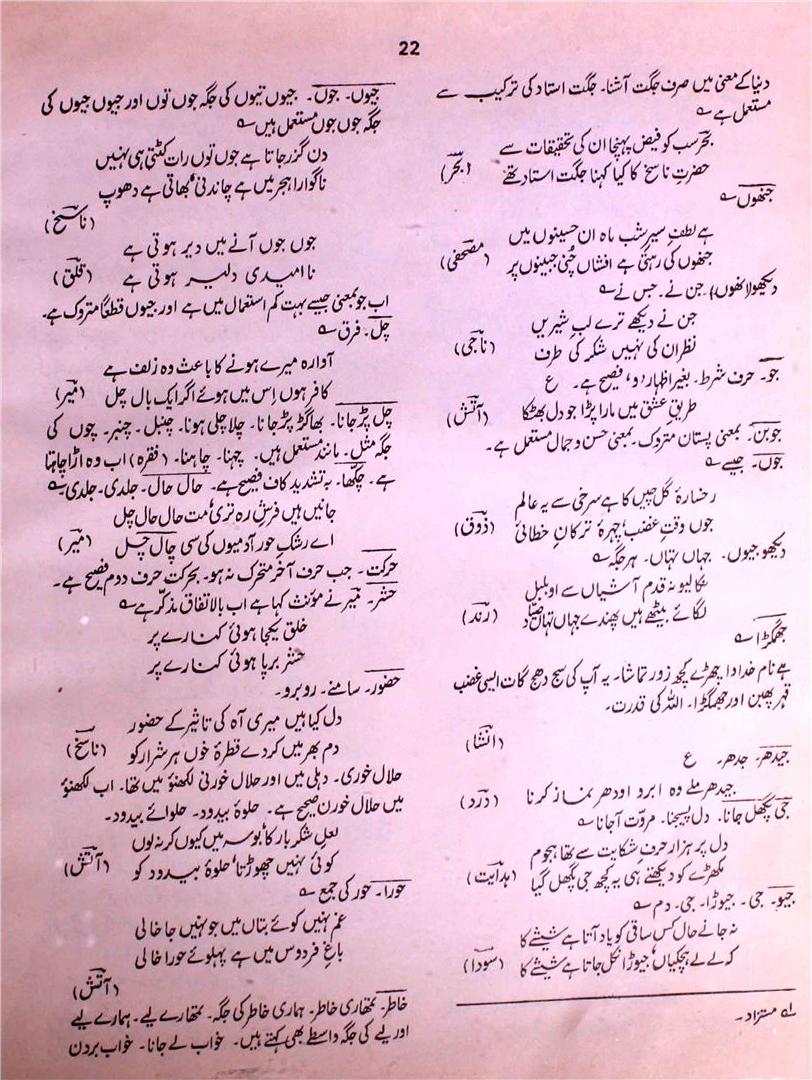 22
دنیا کے معنی میں صرف جگت آشنا۔ جگت استاد کی ترکیب سے
مستعمل ہے ؎
بحر سب کو فیض پہنچا ان کی تحقیقات سے
حضرتِ ناسخ کا کیا کہنا جگت استاد تھے (بحر)
جنھوں ؎
ہے لطفِ سیرِ شب ماہ ان حسینوں میں
جنھوں کی رہتی ہے افشاں چنی جبینوں پر (مصحفی)
دیکھو (انھوں)۔ جن نے۔ جس نے ؎
جن نے دیکھے ترے لبِ شیریں
نظر ان کی نہیں شکر کی طرف (ناجی)
جو۔ حرف شرط۔ بغیر اظہار 'و' فصیح ہے۔ ع
طریقِ عشق میں مارا پڑا جو دل بھٹکا (آتش)
جوبن۔ بمعنی پستان متروک۔ بمعنی حسن و جمال مستعمل ہے۔
جوں۔ جیسے ؎
رخسارۂ گل چیں کا ہے سرخی سے یہ عالم
جوں وقتِ غضب، چہرۂ ترکانِ خطائی (ذوق)
دیکھو جیوں۔ جہاں تہاں۔ ہر جگہ ؎
نکالیو نہ قدم آشیاں سے او بلبل
لگائے بیٹھے ہیں پھندے جہاں تہاں صیاد (رند)
جھمگڑا ؎
ہے نام خدا دا چھڑے کچھ زور تماشا۔ یہ آپ کی سج دھج گات ایسی غضب
قہر پھبن اور جھمگڑا۔ اللہ کی قدرت۔
(انشا)
جیدھر۔ جدھر۔ ع
جیدھر ملے وہ ابرو اودھر نماز کرنا (درد)
جی پگھل جانا۔ دل پسیجنا۔ مروّت آجانا ؎
دل پر ہزار حرفِ شکایت سے تھا ہجوم
مکھڑے کو دیکھتے ہی یہ کچھ جی پگھل گیا (ہدایت)
جیو۔ جی۔ جیوڑا۔ جی۔ دم ؎
نہ جانے حال کس ساقی کو یاد آتا ہے شیشے کا
کہ لے لے ہچکیاں، جیوڑا نکل جاتا ہے شیشے کا (سودا)
؎ مستزاد۔
جیوں۔ جوں۔ جیوں تیوں کی جگہ جوں توں اور جیوں جیوں کی
جگہ جوں جوں مستعمل ہیں ؎
دن گزر جاتا ہے جوں توں رات کٹتی ہی نہیں
ناگوارا ہجر میں ہے چاندنی، بھاتی ہے دھوپ
(ناسخ)
جوں جوں آنے میں دیر ہوتی ہے
ناامیدی دلیر ہوتی ہے (قلق)
اب جو بمعنی جیسے بہت کم استعمال میں ہے اور جیوں قطعاً متروک ہے۔
چل۔ فرق ؎
آوارہ میرے ہونے کا باعث وہ زلف ہے
کافر ہوں اس میں ہوئے اگر ایک بال چل (میر)
چل پڑ جانا۔ بھاگڑ پڑ جانا۔ چلا چلی ہونا۔ چنبل۔ چنبر۔ چوں کی
جگہ مثل۔ مانند مستعمل ہیں۔ چہنا۔ چاہنا۔ (فقرہ) اب وہ اڑا چاہتا
ہے۔ چکھا۔ بہ تشدید کاف فصیح ہے۔ حال حال۔ جلدی۔ جلدی۔ ؎
جانیں ہیں فرشِ رہ تری، مت حال حال چل
اے رشکِ حور آدمیوں کی سی چال چل (میر)
حرکت۔ جب حرف آخر متحرک نہ ہو۔ بحرکتِ حرف دوم فصیح ہے۔
حشر۔ میر نے مونث کہا ہے اب بالاتفاق مذکر ہے ؎
خلق یکجا ہوئی کنارے پر
حشر برپا ہوئی کنارے پر
حضور۔ سامنے۔ روبرو۔
دل کیا ہیں میری آہ کی تاثیر کے حضور
دم بھر میں کر دے قطرۂ خوں ہر شرار کو (ناسخ)
حلال خوری۔ دہلی میں اور حلال خورنی لکھنؤ میں تھا۔ اب لکھنؤ
میں حلال خورن صحیح ہے۔ حلوۂ بیدود۔ حلوائے بیدود۔
لعلِ شکر بار کا، بوسہ میں کیوں کر نہ لوں
کوئی نہیں چھوڑتا، حلوۂ بیدود کو (آتش)
حورا۔ حور کی جمع ؎
غم نہیں کوئے بتاں میں جو نہیں جا خالی
باغِ فردوس میں ہے پہلوئے حورا خالی
(آتش)
خاطر۔ تمھاری خاطر۔ ہماری خاطر کی جگہ۔ تمھارے لیے۔ ہمارے لیے
اور لیے کی جگہ واسطے بھی کہتے ہیں۔ خواب لے جانا۔ خواب بردن